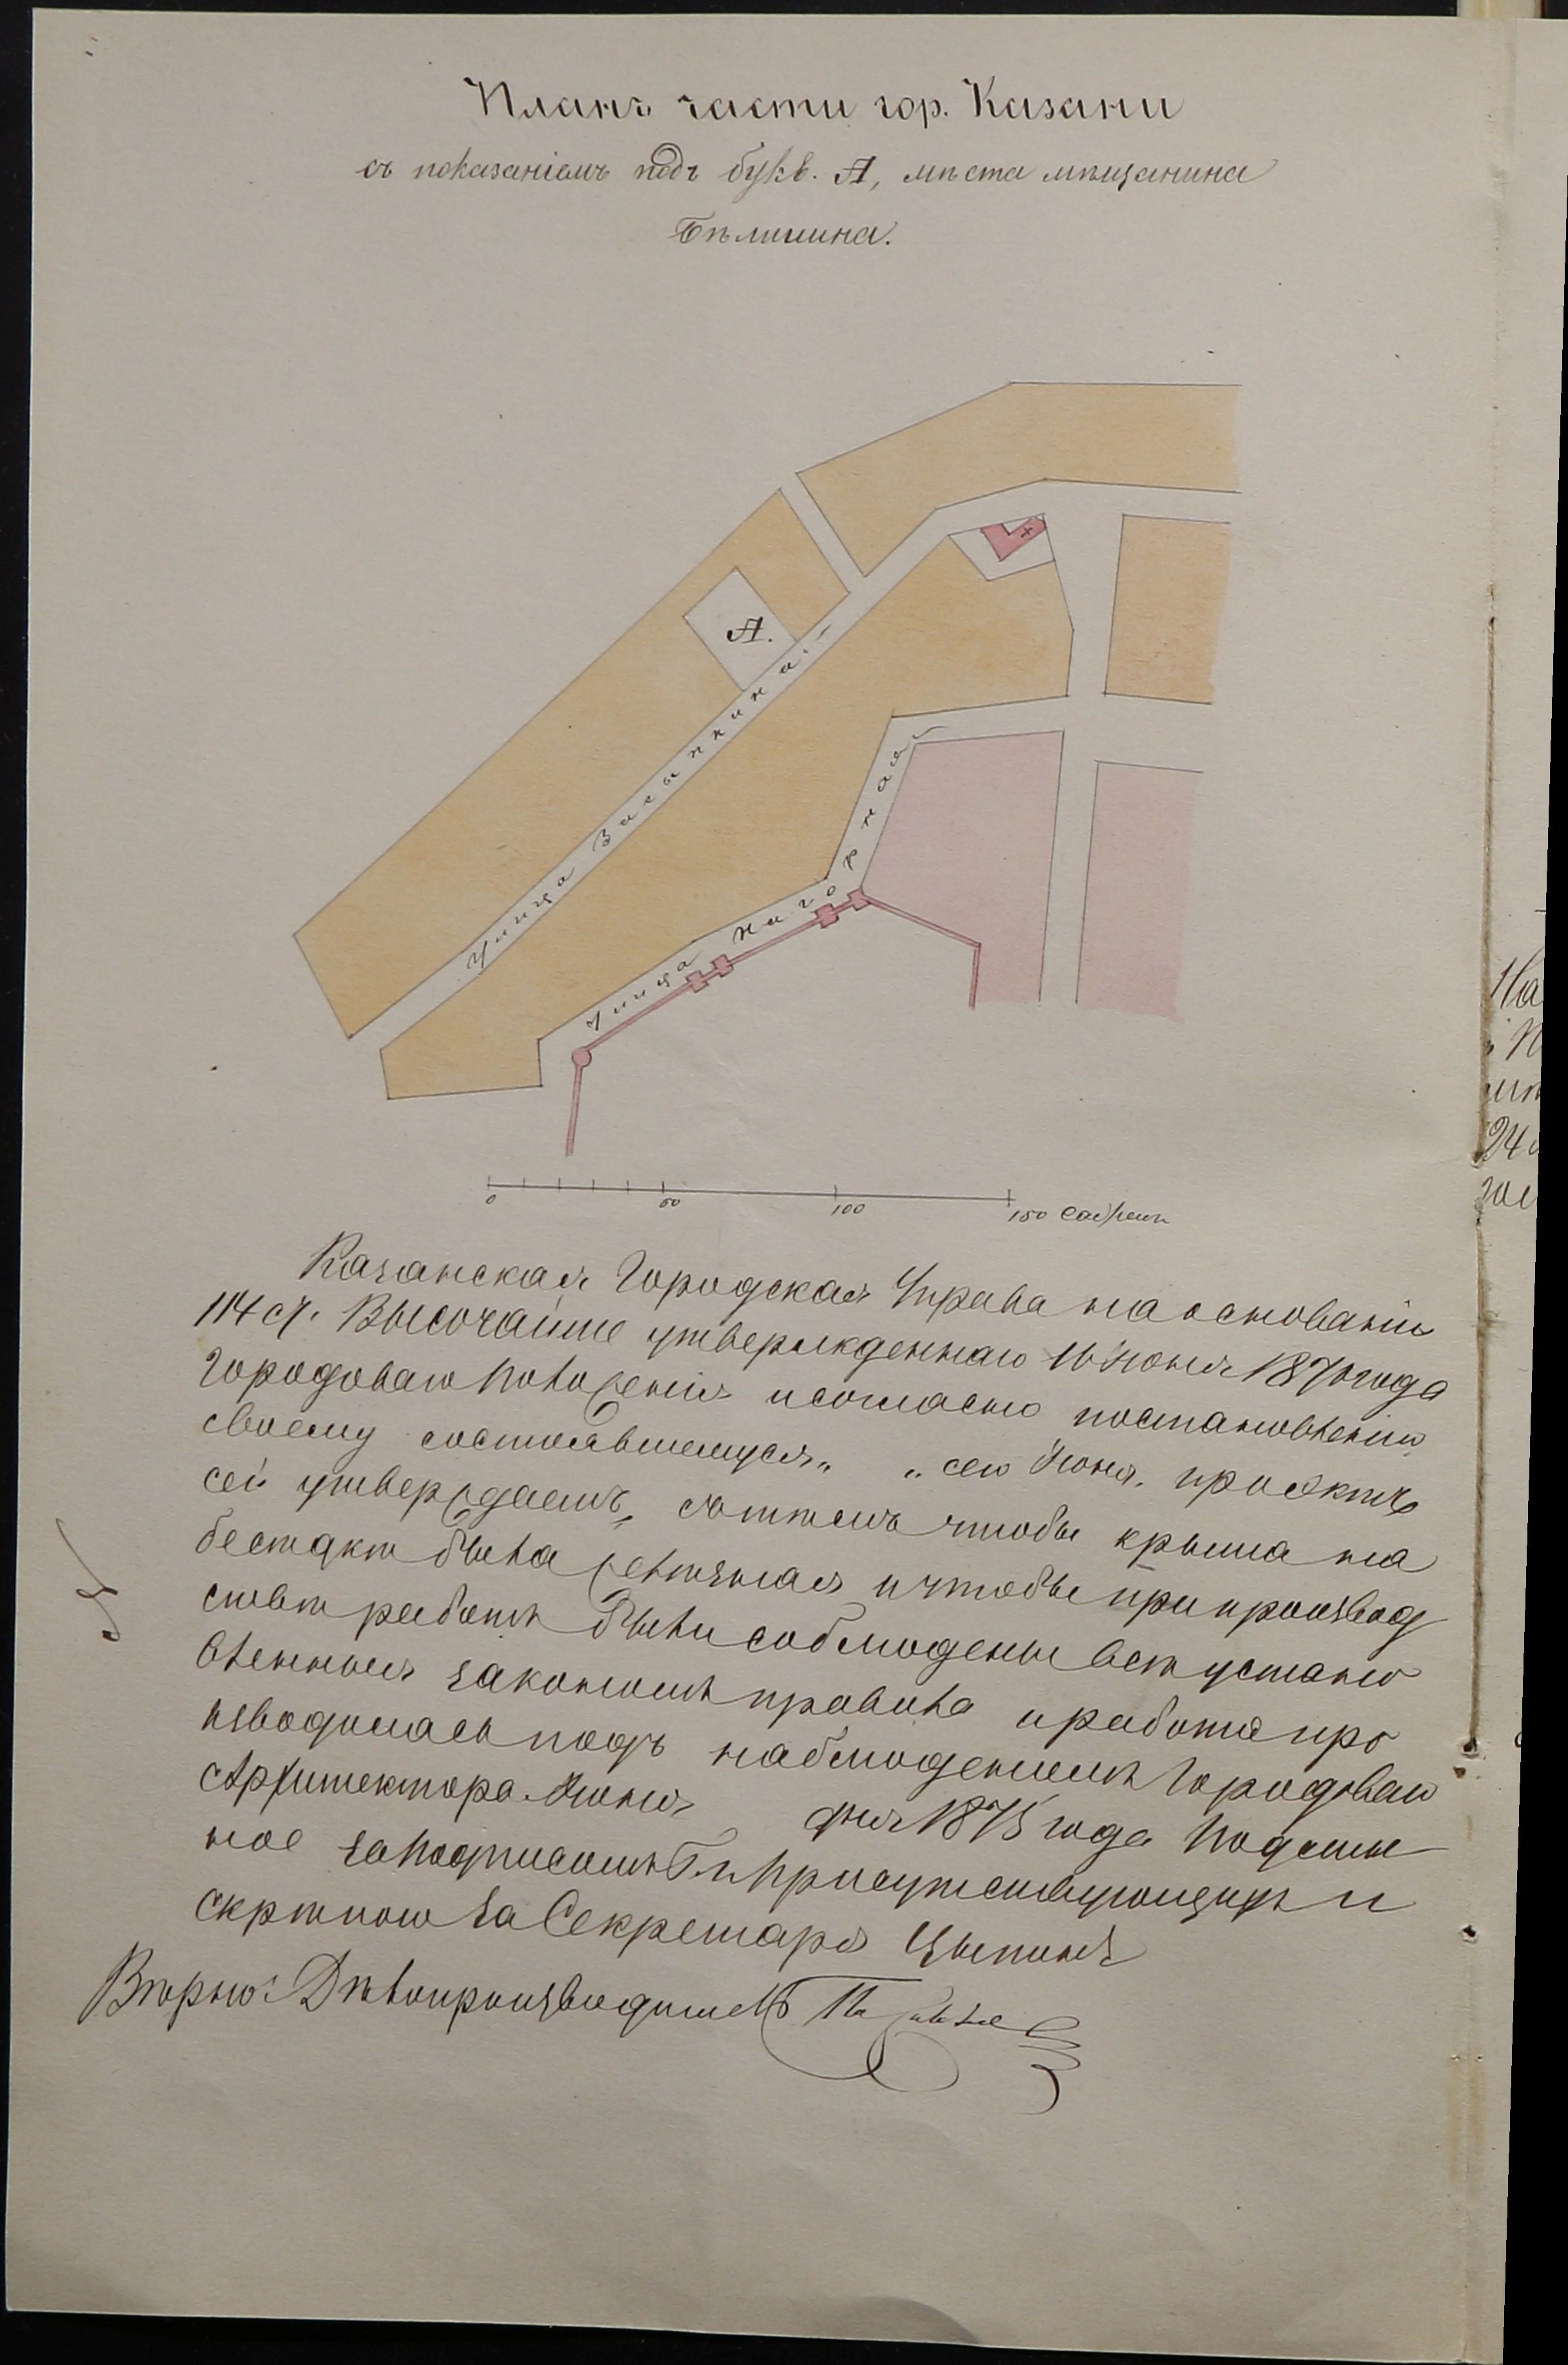 Планъ части гор. Казани
съ показаніемъ подъ букв. А, мѣста мѣщанина
Бѣлинина.
А.
Улица Засыпкина.
Улица Нагорная
0 50 100 150 Сажень
Казанская Городская Управа на основаніи
114 ст. Высочайше утвержденнаго 16 Июня 1870 года
Городоваго Положенія и согласно постановленію
своему состоявшемуся „ „ сего Июня, проэктъ
сей утверждаетъ, съ тѣмъ чтобы крыша на
беседкѣ была желѣзная и чтобы при производ
ствѣ работъ были соблюдены всѣ устано
вленныя закономъ правила и работа про
изводилась подъ наблюденіемъ Городоваго
Архитектора. Июня дня 1875 года Подлин
ное за подписомъ Г.г. Присутствующихъ и
скрѣпою за Секретаря
Вѣрно: Дѣлопроизводитель
На
24